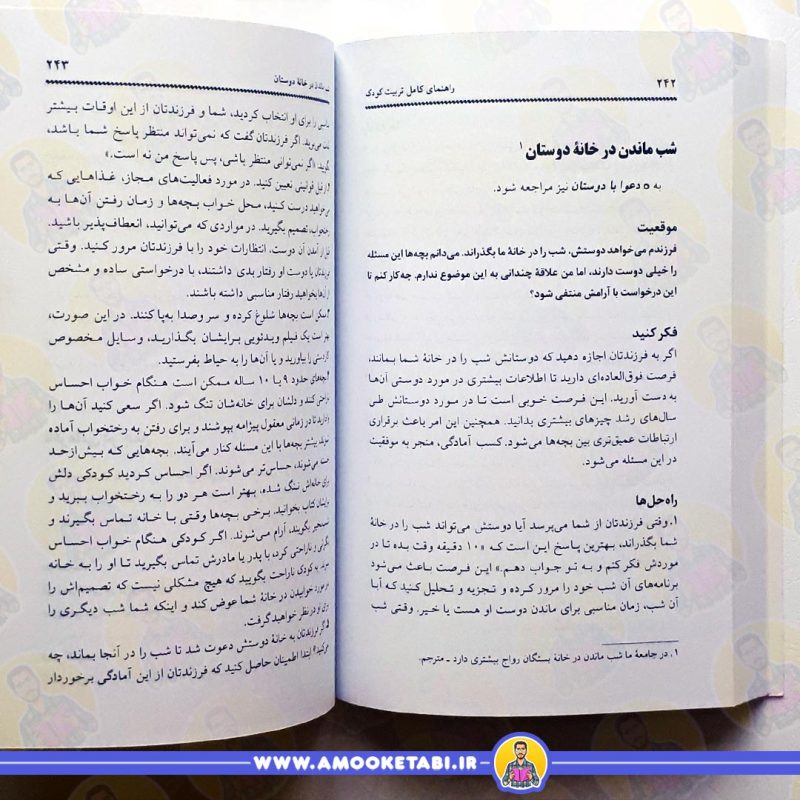 ۲۴۲
راهنمای کامل تربیت کودک
شب ماندن در خانهٔ دوستان ۱
به ۵ دعوا با دوستان نیز مراجعه شود.
موقعیت
فرزندم می‌خواهد دوستش، شب را در خانهٔ ما بگذراند. می‌دانم بچه‌ها این مسئله
را خیلی دوست دارند، اما من علاقهٔ چندانی به این موضوع ندارم. چه‌کار کنم تا
این درخواست با آرامش منتفی شود؟
فکر کنید
اگر به فرزندتان اجازه دهید که دوستانش شب را در خانهٔ شما بمانند،
فرصت فوق‌العاده‌ای دارید تا اطلاعات بیشتری در مورد دوستی آن‌ها
به دست آورید. این فرصت خوبی است تا در مورد دوستانش طی
سال‌های رشد چیزهای بیشتری بدانید. همچنین این امر باعث برقراری
ارتباطات عمیق‌تری بین بچه‌ها می‌شود. کسب آمادگی، منجر به موفقیت
در این مسئله می‌شود.
راه‌حل‌ها
۱. وقتی فرزندتان از شما می‌پرسد آیا دوستش می‌تواند شب را در خانهٔ
شما بگذراند، بهترین پاسخ این است که «۱۰ دقیقه وقت بده تا در
موردش فکر کنم و به تو جواب دهم.» این فرصت باعث می‌شود
برنامه‌های آن شب خود را مرور کرده و تجزیه و تحلیل کنید که آیا
آن شب، زمان مناسبی برای ماندن دوست او هست یا خیر. وقتی شب
۱. در جامعهٔ ما شب ماندن در خانهٔ بستگان رواج بیشتری دارد ـ مترجم.
شب ماندن در خانهٔ دوستان
۲۴۳
مناسبی را برای او انتخاب کردید، شما و فرزندتان از این اوقات بیشتر
لذت می‌برید. اگر فرزندتان گفت که نمی‌تواند منتظر پاسخ شما باشد،
بگویید، «اگر نمی‌توانی منتظر باشی، پس پاسخ من نه است.»
از قبل قوانینی تعیین کنید. در مورد فعالیت‌های مجاز، غذاهایی که
می‌خواهید درست کنید، محل خواب بچه‌ها و زمان رفتن آن‌ها به
رختخواب، تصمیم بگیرید. در مواردی که می‌توانید، انعطاف‌پذیر باشید.
قبل از آمدن آن دوست، انتظارات خود را با فرزندتان مرور کنید. وقتی
فرزندتان یا دوست او رفتار بدی داشتند، با درخواستی ساده و مشخص
از آن‌ها بخواهید رفتار مناسبی داشته باشند.
ممکن است بچه‌ها شلوغ کرده و سر وصدا به‌پا کنند. در این صورت،
بهتر است یک فیلم ویدئویی برایشان بگذارید، وسایل مخصوص
کاردستی را بیاورید و یا آن‌ها را به حیاط بفرستید.
بچه‌های حدود ۹ یا ۱۰ ساله ممکن است هنگام خواب احساس
ناراحتی کنند و دلشان برای خانه‌شان تنگ شود. اگر سعی کنید آن‌ها را
وادارید تا در زمانی معقول پیژامه بپوشند و برای رفتن به رختخواب آماده
شوند، بیشتر بچه‌ها با این مسئله کنار می‌آیند. بچه‌هایی که بیش‌ازحد
خسته می‌شوند، حساس‌تر می‌شوند. اگر احساس کردید کودکی دلش
برای خانه‌اش تنگ شده، بهتر است هر دو را به رختخواب ببرید و
برایشان کتاب بخوانید. برخی بچه‌ها وقتی با خانه تماس بگیرند و
شب‌بخیر بگویند، آرام می‌شوند. اگر کودکی هنگام خواب احساس
نگرانی و ناراحتی کرد، با پدر یا مادرش تماس بگیرید تا او را به خانه
به کودک ناراحت بگویید که هیچ مشکلی نیست که تصمیم‌اش را
در مورد خوابیدن در خانهٔ شما عوض کند و اینکه شما شب دیگری را
برای او در نظر خواهید گرفت.
اگر فرزندتان به خانهٔ دوستش دعوت شد تا شب را در آنجا بماند، چه
می‌کنید؟ ابتدا اطمینان حاصل کنید که فرزندتان از این آمادگی برخوردار
WWW.AMOOKETABI.IR